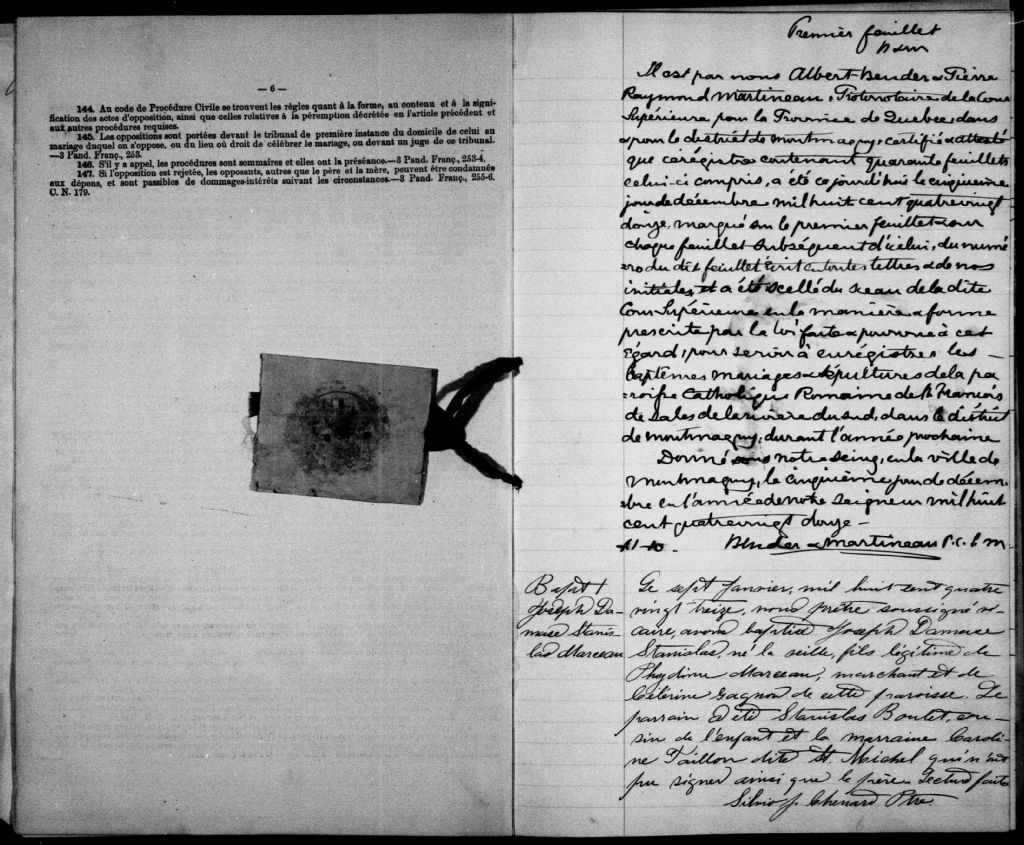 — 6 —
144. Au code de Procédure Civile se trouvent les règles quant à la forme, au contenu et à la signi-
fication des actes d'opposition, ainsi que celles relatives à la péremption décrétée en l'article précédent et
aux autres procédures requises.
145. Les oppositions sont portées devant le tribunal de première instance du domicile de celui au
mariage duquel on s'oppose, ou du lieu où droit de célébrer le mariage, ou devant un juge de ce tribunal.
—3 Pand. Franç., 253.
146. S'il y a appel, les procédures sont sommaires et elles ont la préséance.—3 Pand. Franç., 253-4.
147. Si l'opposition est rejetée, les opposants, autres que le père et la mère, peuvent être condamnés
aux dépens, et sont passibles de dommages-intérêts suivant les circonstances.—3 Pand. Franç., 255-6.
C. N. 179.
Premier feuillet
B & M
Il est par nous Albert Bender & Pierre
Raymond Martineau, Protonotaire de la Cour
Supérieure pour la Province de Quebec, dans
& pour le district de Montmagny, certifié & attesté
que ce régistre contenant quarante feuillets
celui-ci compris, a été ce jourd'hui le cinquième
jour de décembre mil huit cent quatrevingt
douze, marqué sur le premier feuillet & sur
chaque feuillet subséquent d'icelui, du numé
ro du dit feuillet écrit en toutes lettres & de nos
initiales, et a été scellé du sceau de la dite
Cour Supérieure en la manière & forme
prescrite par la loi faite & pourvue à cet
égard, pour servir à enrégistrer les —
Baptêmes mariages & sépultures de la pa
roisse Catholique Romaine de St François
de Sales de la rivière du sud, dans le district
de Montmagny, durant l'année prochaine
Donné sous notre seing, en la ville de
Montmagny, le cinquième jour de décem
bre en l'année de notre Seigneur mil huit
cent quatrevingt douze —
Bender & Martineau P.C.S. M.
Bapt 1
Joseph Da-
mase Stanis-
las Marceau
Le sept Janvier, mil huit cent quatre
vingt-treize, nous prêtre soussigné vi-
caire, avons baptisé Joseph Damase
Stanislas, né la veille, fils légitime de
Phydime Marceau, marchand et de
Célérine Gagnon de cette paroisse. Le
parrain a été Stanislas Boulet, cou-
sin de l'enfant et la marraine Caroli-
ne Taillon dite St. Michel qui n'ont
pu signer ainsi que le père. Lecture faite
Silvio J. Chenard Ptre.